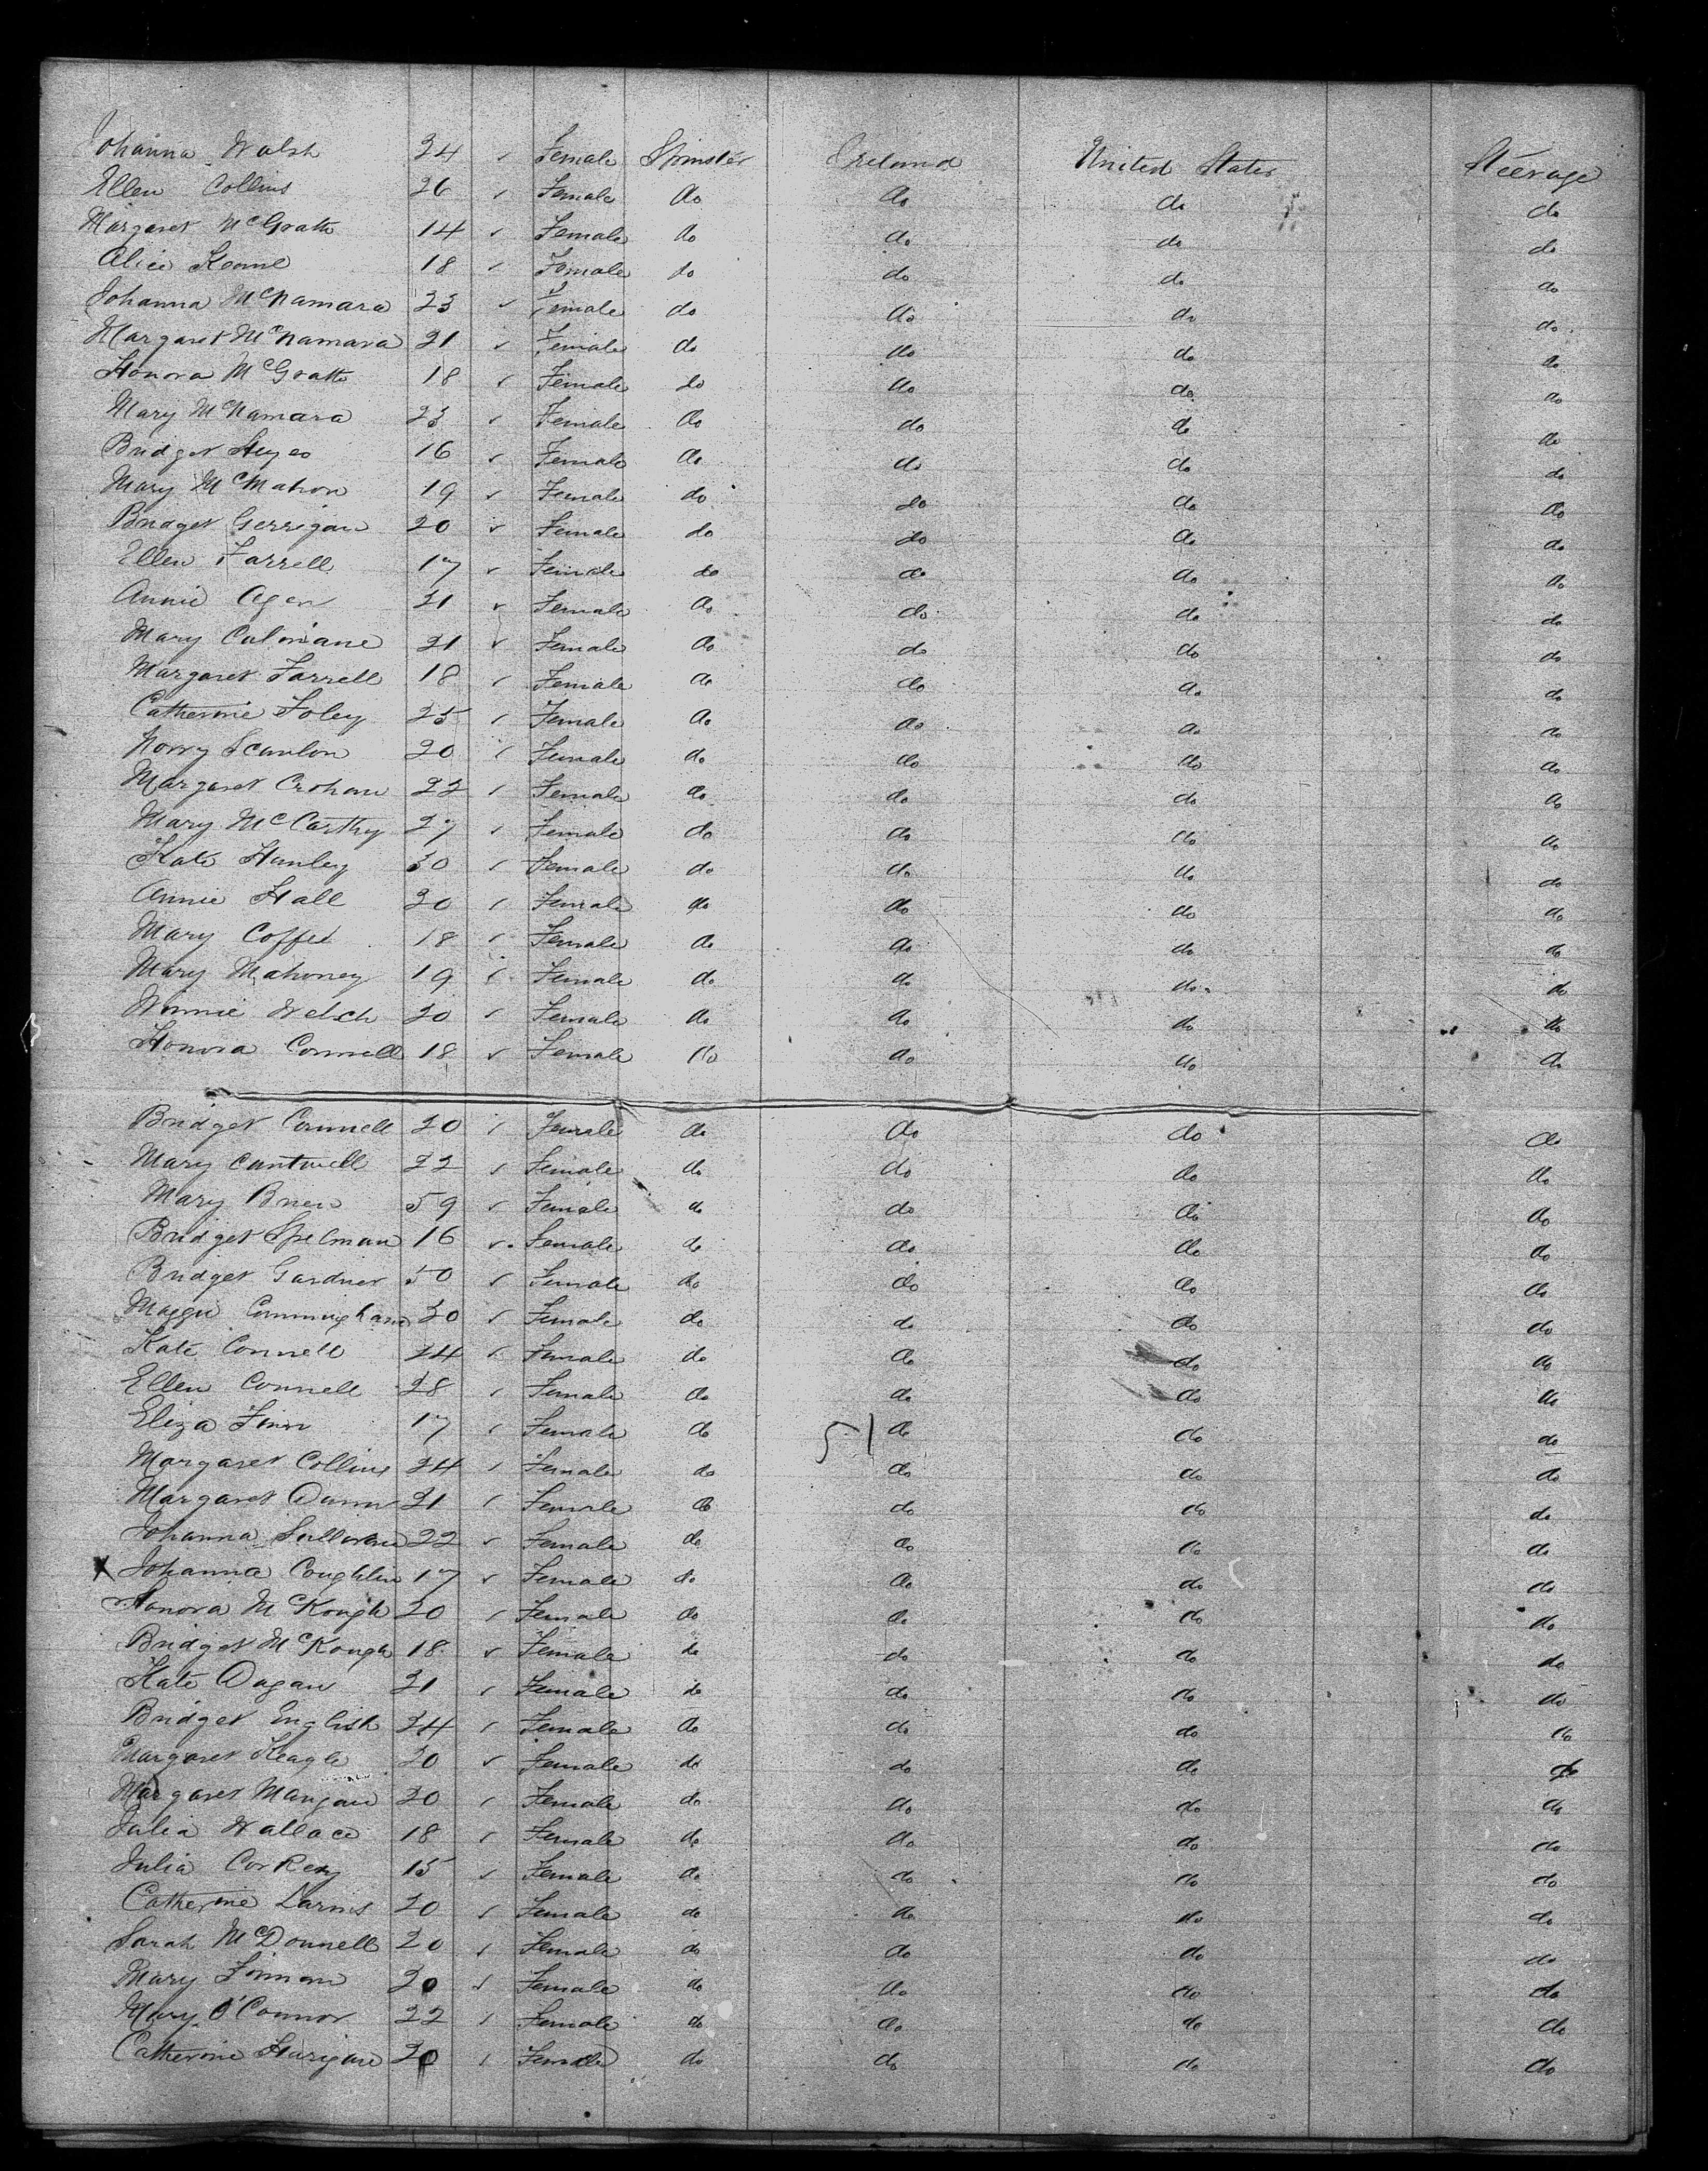 Johanna Walsh 24 Female Spinster Ireland United States Steerage
Ellen Collins 26 Female do do do do
Margaret McGrath 14 Female do do do do
Alice 18 Female do do do do
Johanna McNamara 23 Female do do do do
Margaret McNamara 21 Female do do do do
Honora McGrath 18 Female do do do do
Mary McNamara 23 Female do do do do
Bridget 16 Female do do do do
Mary McMahon 19 Female do do do do
Bridget Gerrigan 20 Female do do do do
Ellen Farrell 17 Female do do do do
Annie Agen 21 Female do do do do
Mary 21 Female do do do do
Margaret Farrell 18 Female do do do do
Catherine Foley 25 Female do do do do
Norry Scanlon 20 Female do do do do
Margaret Crohan 22 Female do do do do
Mary McCarthy 27 Female do do do do
Kate Hanley 30 Female do do do do
Annie Hall 20 Female do do do do
Mary Coffee 18 Female do do do do
Mary Mahoney 19 Female do do do do
Winnie Welch 20 Female do do do do
Honora Connell 18 Female do do do do
Bridget Connell 20 Female do do do do
Mary Cantwell 22 Female do do do do
Mary Brien 59 Female do do do do
Bridget Spelman 16 Female do do do do
Bridget Gardner 50 Female do do do do
Maggie Cunningham 30 Female do do do do
Kate Connell 24 Female do do do do
Ellen Connell 28 Female do do do do
Eliza Finn 17 Female do 51 do do do
Margaret Collins 24 Female do do do do
Margaret Dunn 21 Female do do do do
Johanna Sullivan 22 Female do do do do
X Johanna Coughlin 17 Female do do do do
Honora McKough 20 Female do do do do
Bridget McKough 18 Female do do do do
Kate Dugan 21 Female do do do do
Bridget English 24 Female do do do do
Margaret Keagle 20 Female do do do do
Margaret Mangan 20 Female do do do do
Julia Wallace 18 Female do do do do
Julia Corkery 15 Female do do do do
Catherine 20 Female do do do do
Sarah McDonnell 20 Female do do do do
Mary 20 Female do do do do
Mary O'Connor 22 Female do do do do
Catherine Harigan 20 Female do do do do